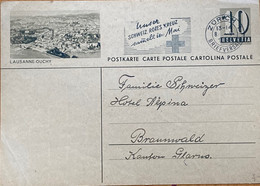 Unser
SCHWEIZ. ROTES KREUZ
sammelt im Mai
10
HELVETIA
POSTKARTE CARTE POSTALE CARTOLINA POSTALE
LAUSANNE-OUCHY
Familie Schweizer
Hotel Alpina
Braunwald
Kanton Glarus.